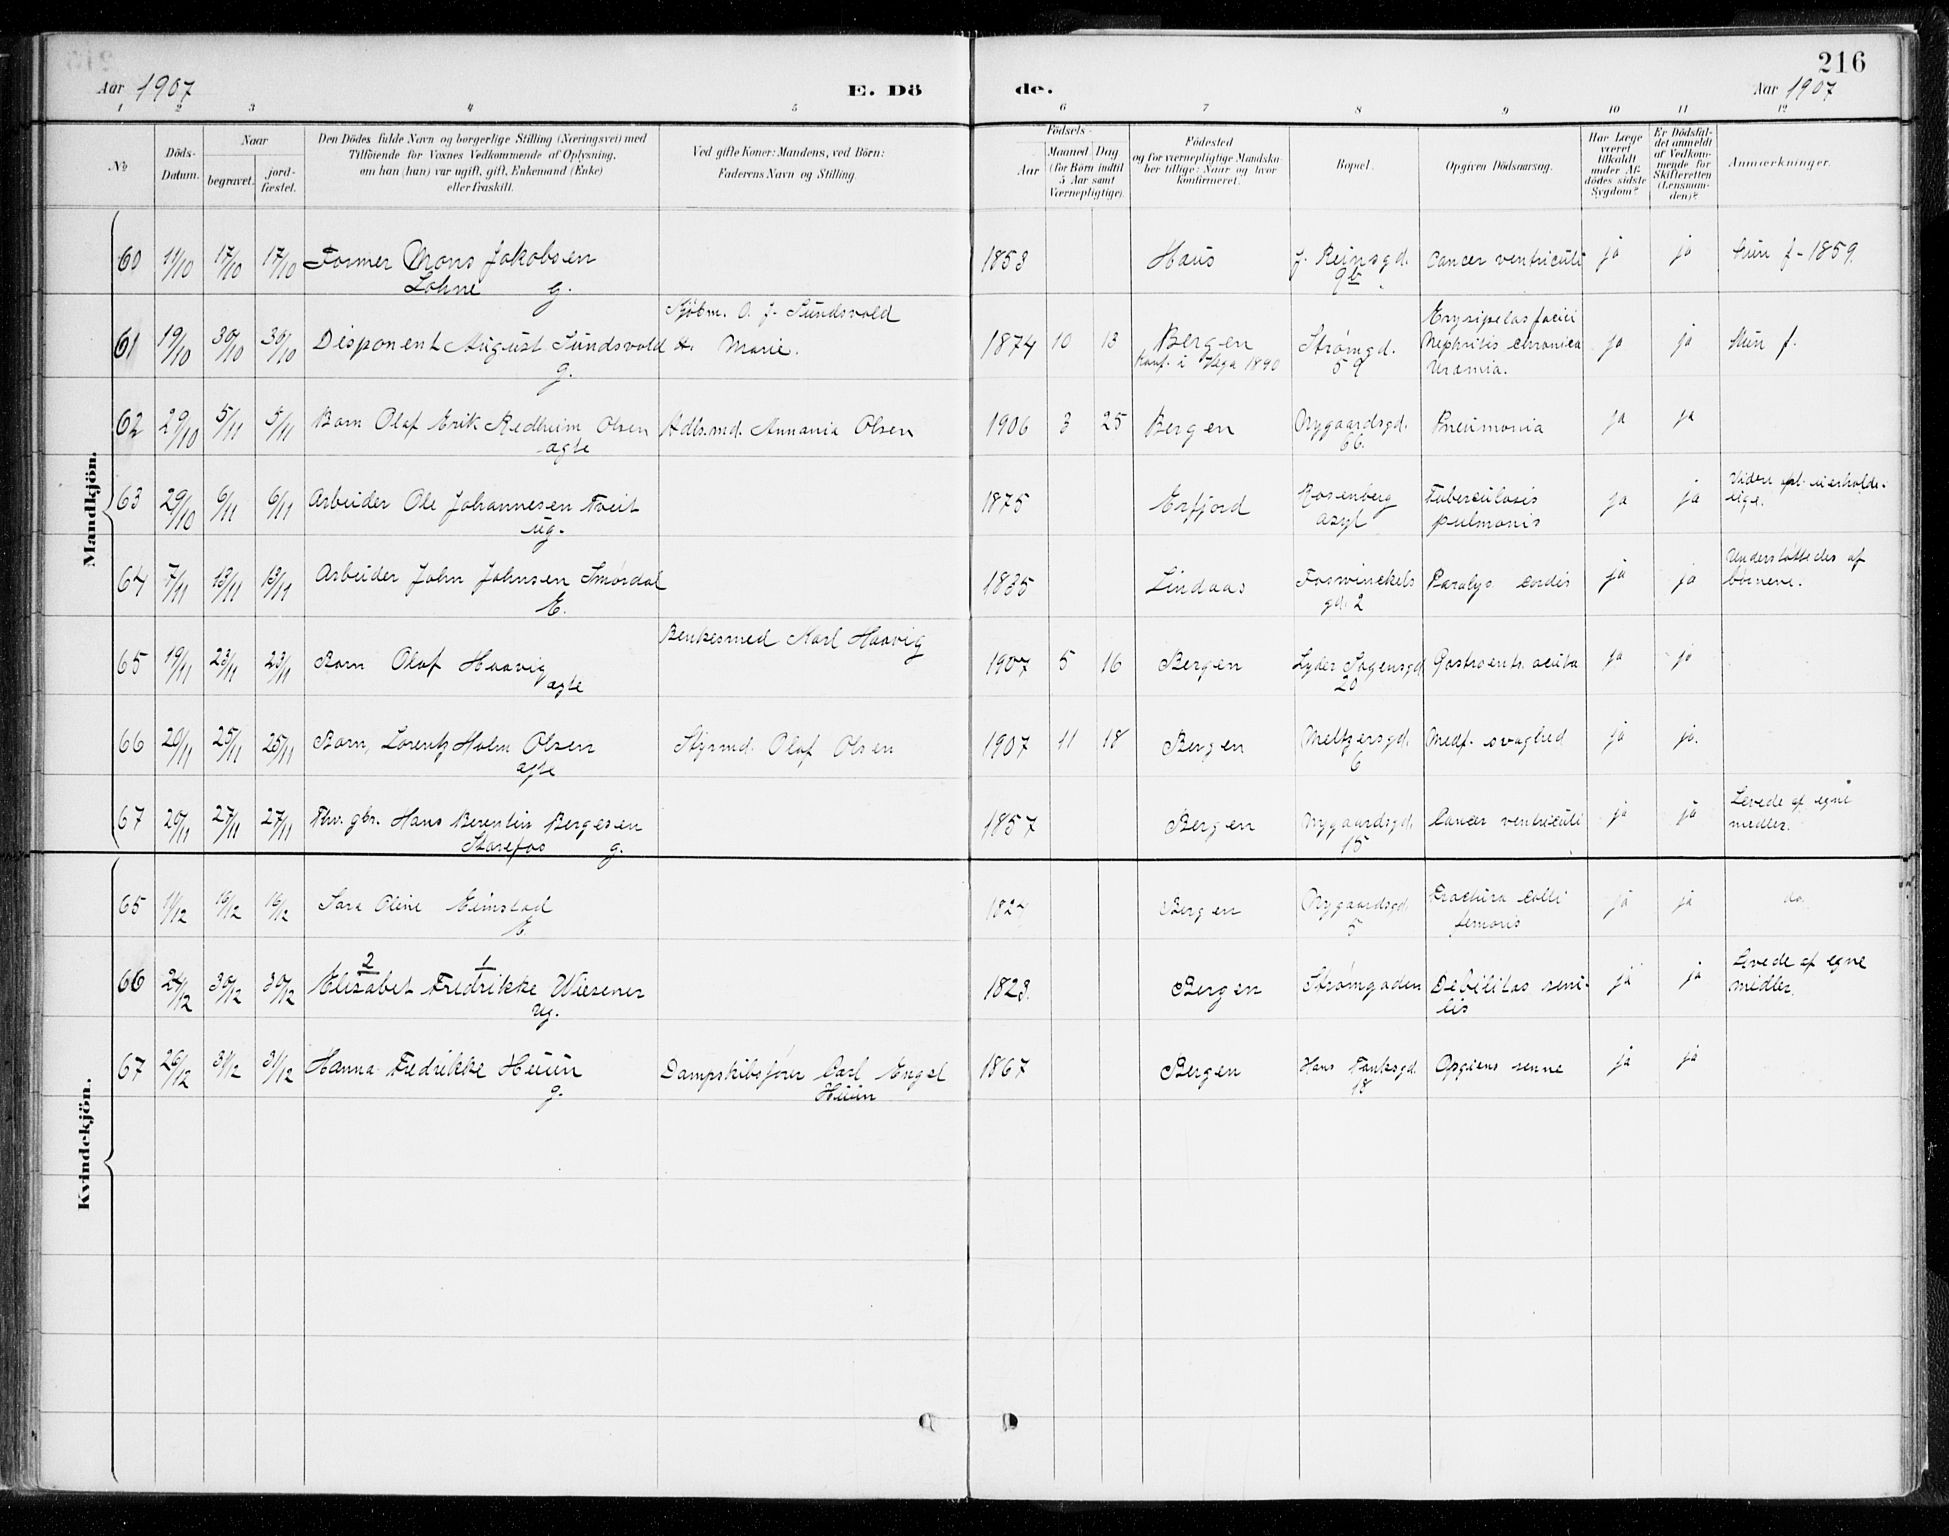 216
Aar 1907 E. Dö de. Aar 1907
1 2 3 4 5 6 7 8 9 10 11 12
No
Döds-Datum.
Naar
begravet.
jord-fæstet.
Den Dödes fulde Navn og borgerlige Stilling (Næringsvei) med
Tilföiende for Voxnes Vedkommende af Oplysning,
om han (hun) var ugift, gift, Enkemand (Enke)
eller fraskilt.
Ved gifte Koner: Mandens, ved Börn:
Faderens Navn og Stilling.
Födsels-
Aar
Maaned Dag
(for Börn indtil
5 Aar samt
Værnepligtige).
Födested
og for værnepligtige Mandskaber tillige: Naar og hvor
konfirmeret.
Bopæl.
Opgiven Dödsaarsag.
Har Læge
været
tilkaldt
under Afdödes sidste
Sygdom?
Er Dödsfaldet anmeldt
af Vedkommende for
Skifteretten
(Lensmanden)?
Anmærkninger.
Mandkjön.
60 11/10 17/10 17/10 Former Mons Jakobsen 1853 Haus J. Reinsgd. Cancer ventriculi ja ja Hun f. 1859.
Lohne g. 9b
Sjøtm. O. J. Sundsvold Erysipelas faciei
61 19/10 30/10 30/10 Disponent August Sundsvold Marie. 1874 10 13 Bergen Strømgd. Nephritis chronica ja ja Hun f.
g. Konf. i Vega 1890 59 Uræmia.
62 29/10 5/11 5/11 Barn Olaf Erik Redheim Olsen Hdls.md. Annania Olsen 1906 3 25 Bergen Nygaardsgd. Pneumonia ja ja
ægte 66.
63 29/10 6/11 6/11 Arbeider Ole Johannesen Tveit 1875 Erfjord Rosenberg Tuberculosis ja ja
ug. asyl pulmonis
64 7/11 13/11 13/11 Arbeider John Johnsen Smørdal 1835 Lindaas Foswinckels Paralys cordis ja ja Understøttedes af
E. gd. 2 børnene.
Karl Haavig
65 19/11 23/11 23/11 Barn Olaf Haavig 1907 5 16 Bergen Lyder Sagensgd. Gastroent. acuta ja ja
ægte 20
66 20/11 25/11 25/11 Barn, Lorentz Holm Olsen Styrmd. Olaf Olsen 1907 11 18 Bergen Meltzersgd. Medf. svaghed ja ja.
ægte 6
67 20/11 27/11 27/11 Fhv. gbr. Hans Berentin Bergesen 1857 Bergen Nygaardsgd. Cancer ventriculi ja ja Levede af egne
Storefos g. 15 midler.
Kvindekjön.
65 11/12 16/12 16/12 Sara Oline Eimstad 1824 Bergen Nygaardsgd. Fractura colli ja ja do.
E. 5 femoris
2 1
66 24/12 30/12 30/12 Elisabet Fredrikke Wiesener 1823. Bergen Strømgaden Debilitas seni- ja ja Levede af egne
ug. lis midler.
67 26/12 31/12 31/12 Hanna Fredrikke Heiun Dampskibsfører Carl Engel 1867 Bergen Hans Tanksgd. ja ja
g. Heiun 18